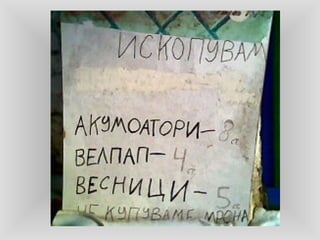 ИСКОПУВАМ
АКУМОАТОРИ- 8
ВЕЛПАП- 4
ВЕСНИЦИ- 5
НЕ КУПУВАМЕ